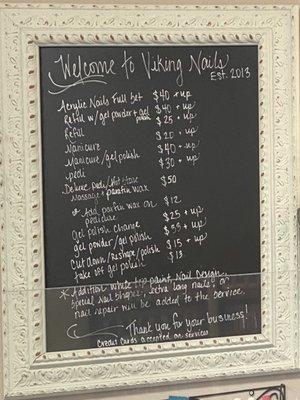 Welcome to Viking Nails
Est. 2013
Acrylic Nails Full Set $40 + up
Refill w/ gel powder + gel polish $40 + up
Refill $25 + up
Manicure $20 + up
Manicure/gel polish $40 + up
pedi $30 + up
Deluxe pedi/Hot Stone $50
Massage + parafin wax
* Add parfin wax on $12
pedicure
Gel polish change $25 + up
gel powder/gel polish $55 + up
Cut down/Reshape/polish $15 + up
Soak off gel polish $15
* Addition white tip paint, Nail Design,
special nail shapes, extra long nails, or
nail repair will be added to the service.
Thank you for your business!
Credit Cards accepted on services